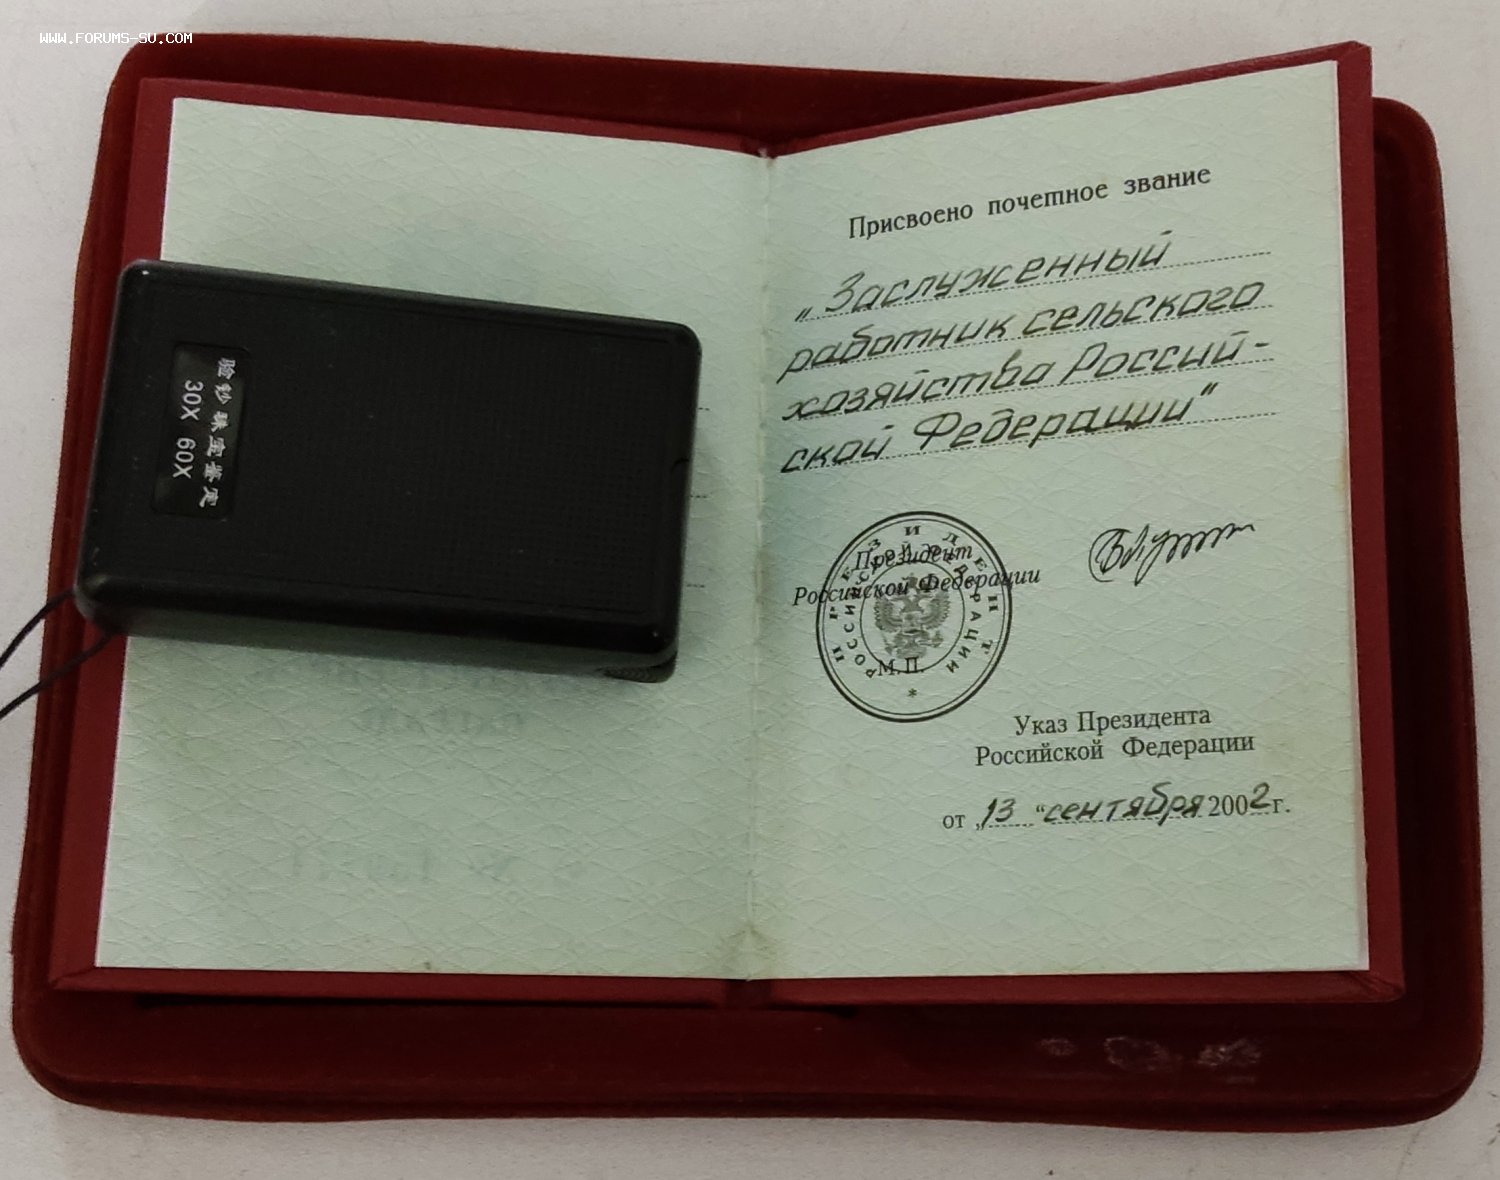 WWW.FORUMS-SU.COM
Присвоено почетное звание
„Заслуженный
работник сельского
хозяйства Россий-
ской Федерации"
Президент
Российской Федерации
ПРЕЗИДЕНТ
РОССИЙСКОЙ ФЕДЕРАЦИИ
*
М.П.
Указ Президента
Российской Федерации
от „13 “ сентября 2002 г.
验钞珠宝鉴定
30X 60X